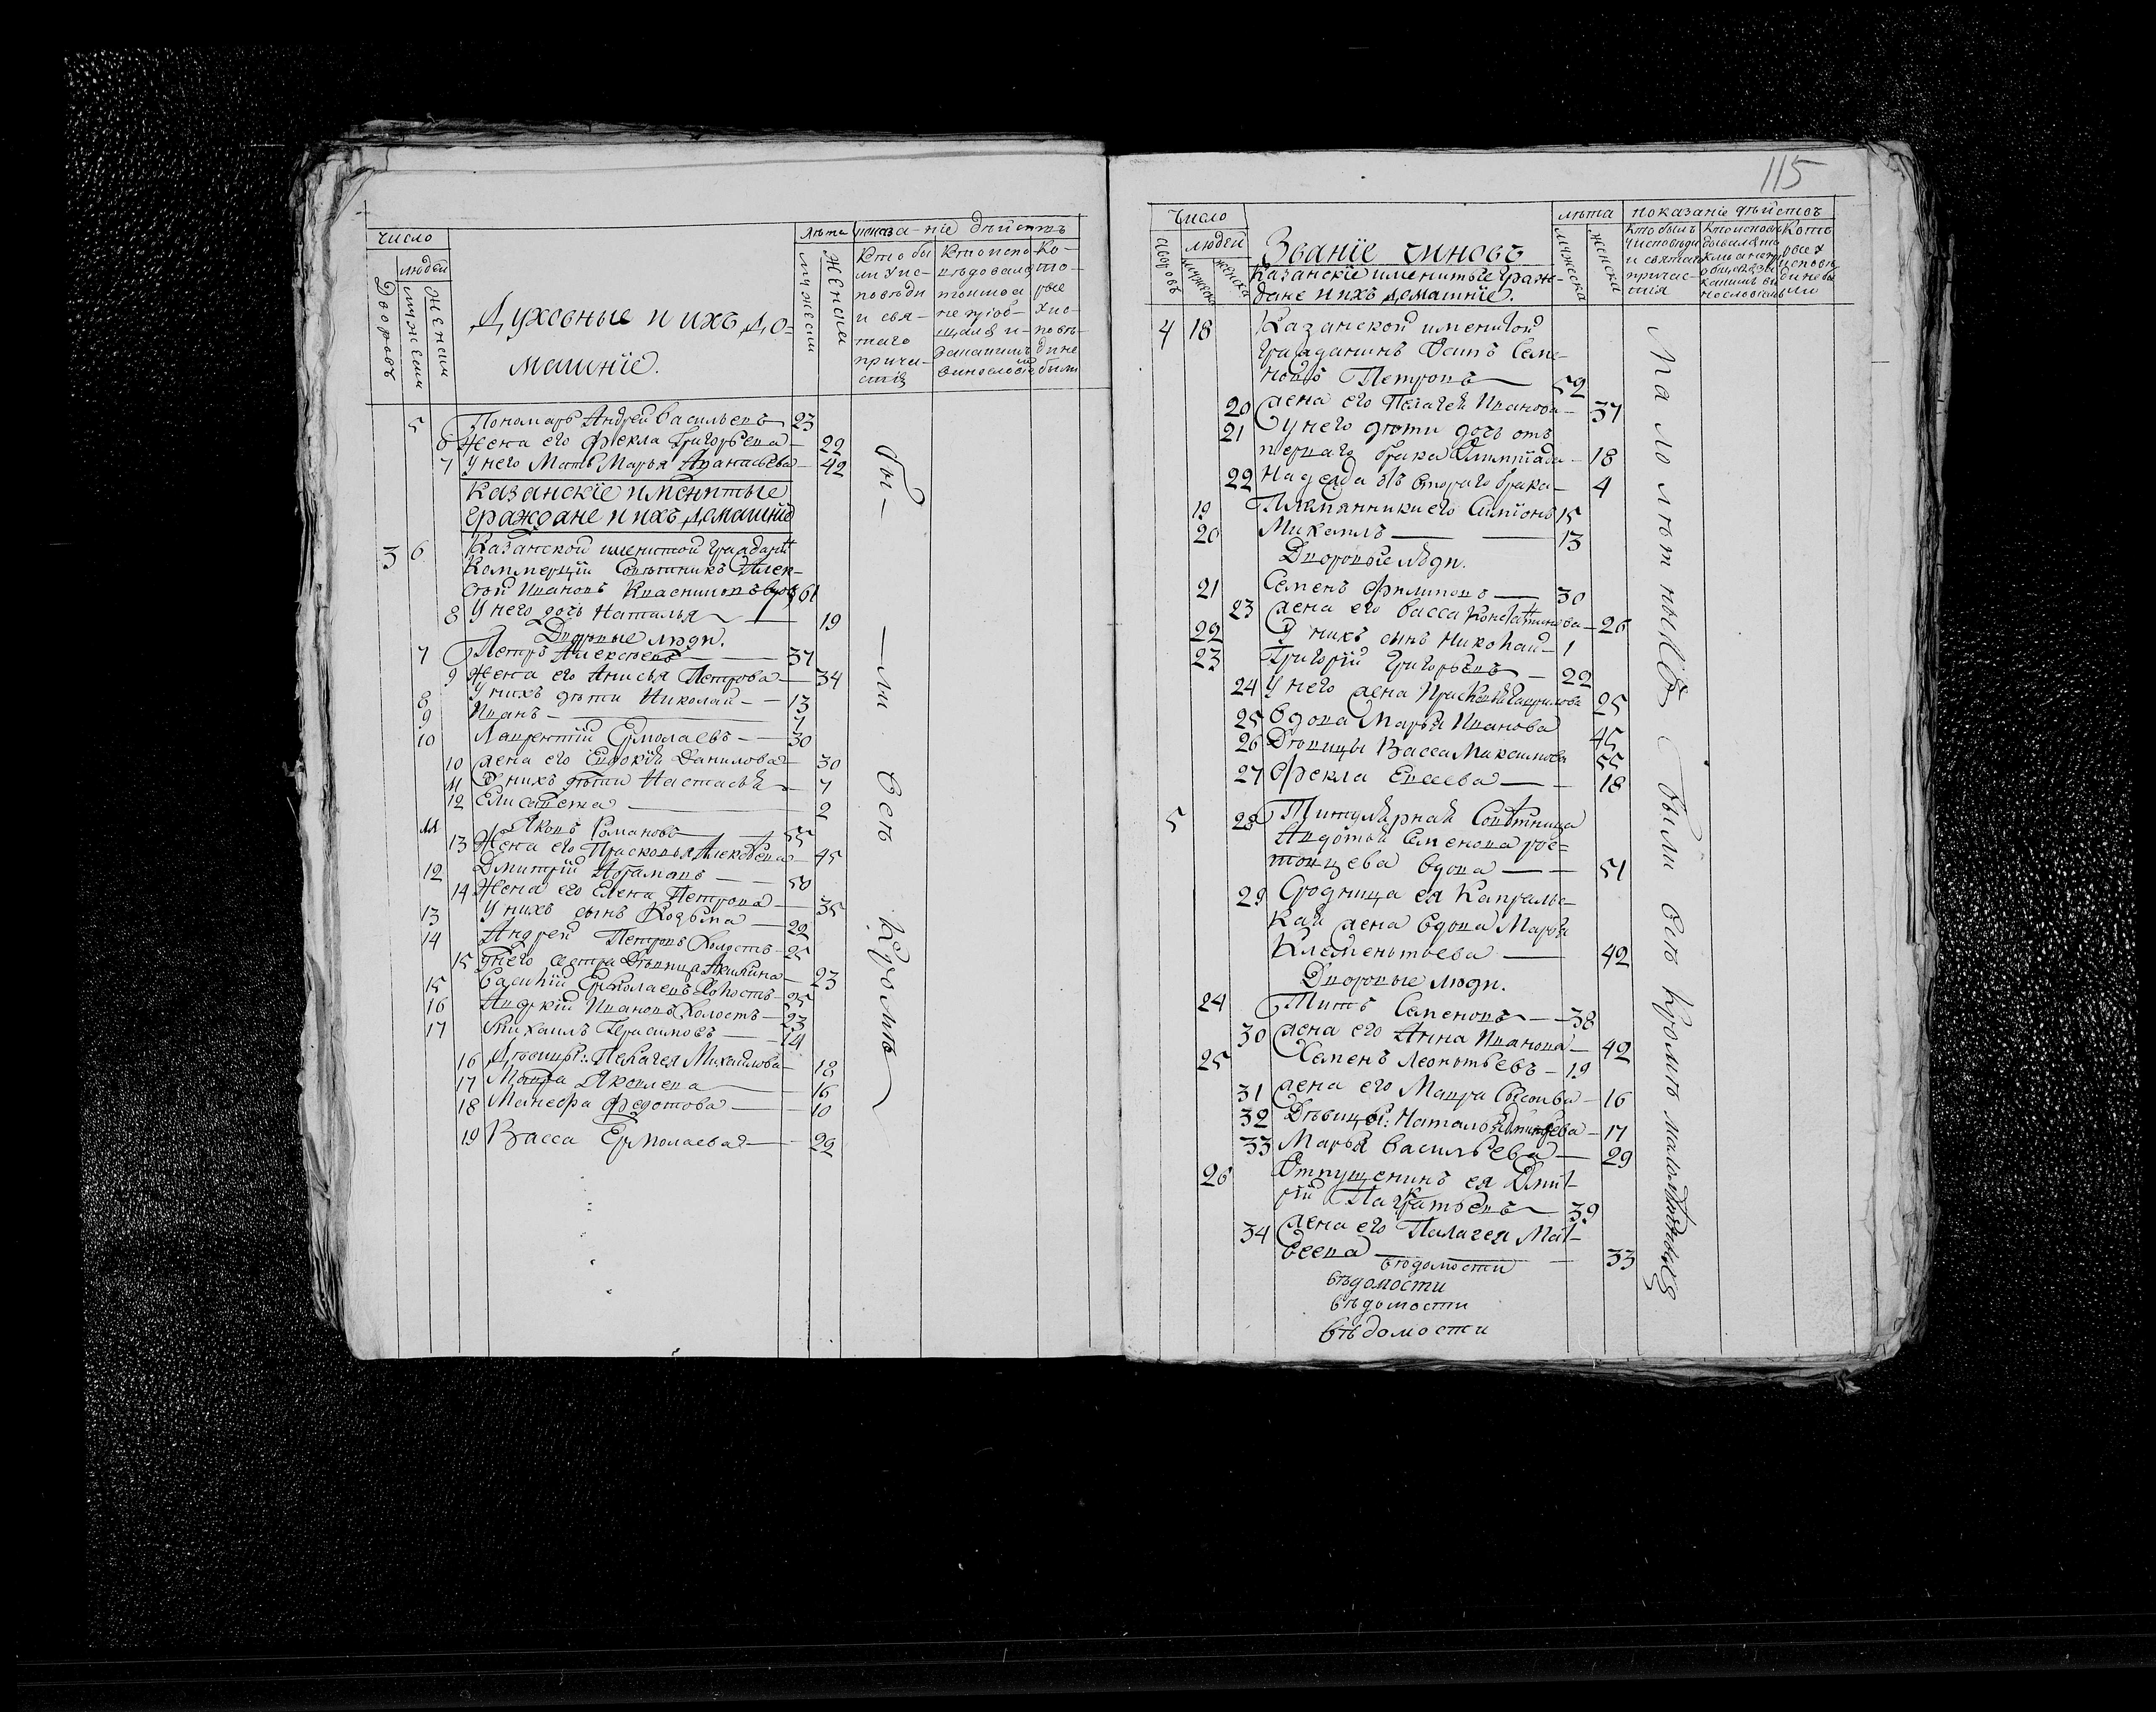 число
Дворовъ
людей
мужеска
женска
Духовные и ихъ до=
машнїе.
лѣта
мужеска
женска
показа-нїе дѣйствъ
Кто бы
ли у ис-
повѣди
и свя-
таго
прича-
стїя
Кто испо-
вѣдовался
токмо а
не прїоб-
щался и
за какимъ
винословїемъ
Ко-
то-
рые
у ис-
повѣ-
ди не
были
5 Пономарь Андрей Васильевъ 23
6 Жена его Фекла Григорьева 22
7 У него Мать Марья Афанасьева 42
Казанскїе имянитые
граждане и ихъ домашнїе
3 6 Казанской именитой гражданинъ
Коммерцїи Совѣтникъ Алек-
сѣй Ивановъ вдовъ 61
8 У него дочь Наталья 19
Дворовые люди.
7 Петръ Алексѣевъ 37
9 Жена его Анисья Петрова 34
8 У нихъ дѣти Николай 13
9 Иванъ 7
10 Лаврентїй Ермолаевъ 30
10 жена его Евдокїя Данилова 30
11 У нихъ дѣти Настасья 7
12 Елисавета 2
11 Яковъ Романовъ 55
13 Жена его Прасковья Алексѣева 45
12 Дмитрїй 50
14 Жена его Елена Петрова 35
13 У нихъ сынъ Козьма 22
14 Андрей Петровъ Холостъ 25
15 У него сестра Дѣвица Акилина 23
15 Василїй Ермолаевъ Холостъ 25
16 Ивановъ Холостъ 23
17 Михаилъ Герасимовъ 14
16 Дѣвицы: Пелагея Михайлова 18
17 Мавра Яковлева 16
18 Манефа Федотова 10
19 Васса Ермолаева 22
бы- -ли всѣ кромѣ
115
Число
дворовъ
людей
мужеска
женска
Званїе чиновъ
Казанскїе именитые граж-
дане и ихъ домашнїе.
лѣта
мужеска
женска
показанїе дѣйствъ
Кто былъ
у исповѣди
и святаго
причас-
тїя
4 18 Казанской именитой
гражданинъ Осипъ Семе-
новъ Петровъ 52
20 жена его Пелагея Иванова 37
21 У него дѣти дочь отъ
перваго брака Олимпїада 18
22 Надежда отъ втораго брака 4
19 Племянники его Симїонъ 15
20 Михаилъ 13
Дворовые люди.
21 Семенъ Филиповъ 30
23 жена его Васса Константинова 26
22 У нихъ сынъ Николай 1
23 Григорїй Григорьевъ 22
24 У него жена Прасковья Гаврилова 25
25 Вдова Марья Иванова 45
26 Дѣвицы Васса Максимова 55
27 Фекла Евсеева 18
5 28 Титулярная Совѣтница
Авдотья Семенова рос=
товцева вдова 51
29 Сродница ея Капраль-
кая жена вдова Марья
Клементьева 42
Дворовые люди.
24 Титъ Семеновъ 38
30 жена его Анна Иванова 42
25 Семенъ Леонтьевъ 19
31 жена его Мавра Сысоева 16
32 Дѣвицы: Наталья 17
33 Марья Васильева 29
26 Отпущенникъ ея Дмит-
рїй Панкратьевъ 39
34 жена его Палагея Мат-
веева 33
вѣдомости
вѣдомости
вѣдомости
вѣдомости
Малолѣтныхъ были всѣ кромѣ малолѣтныхъ